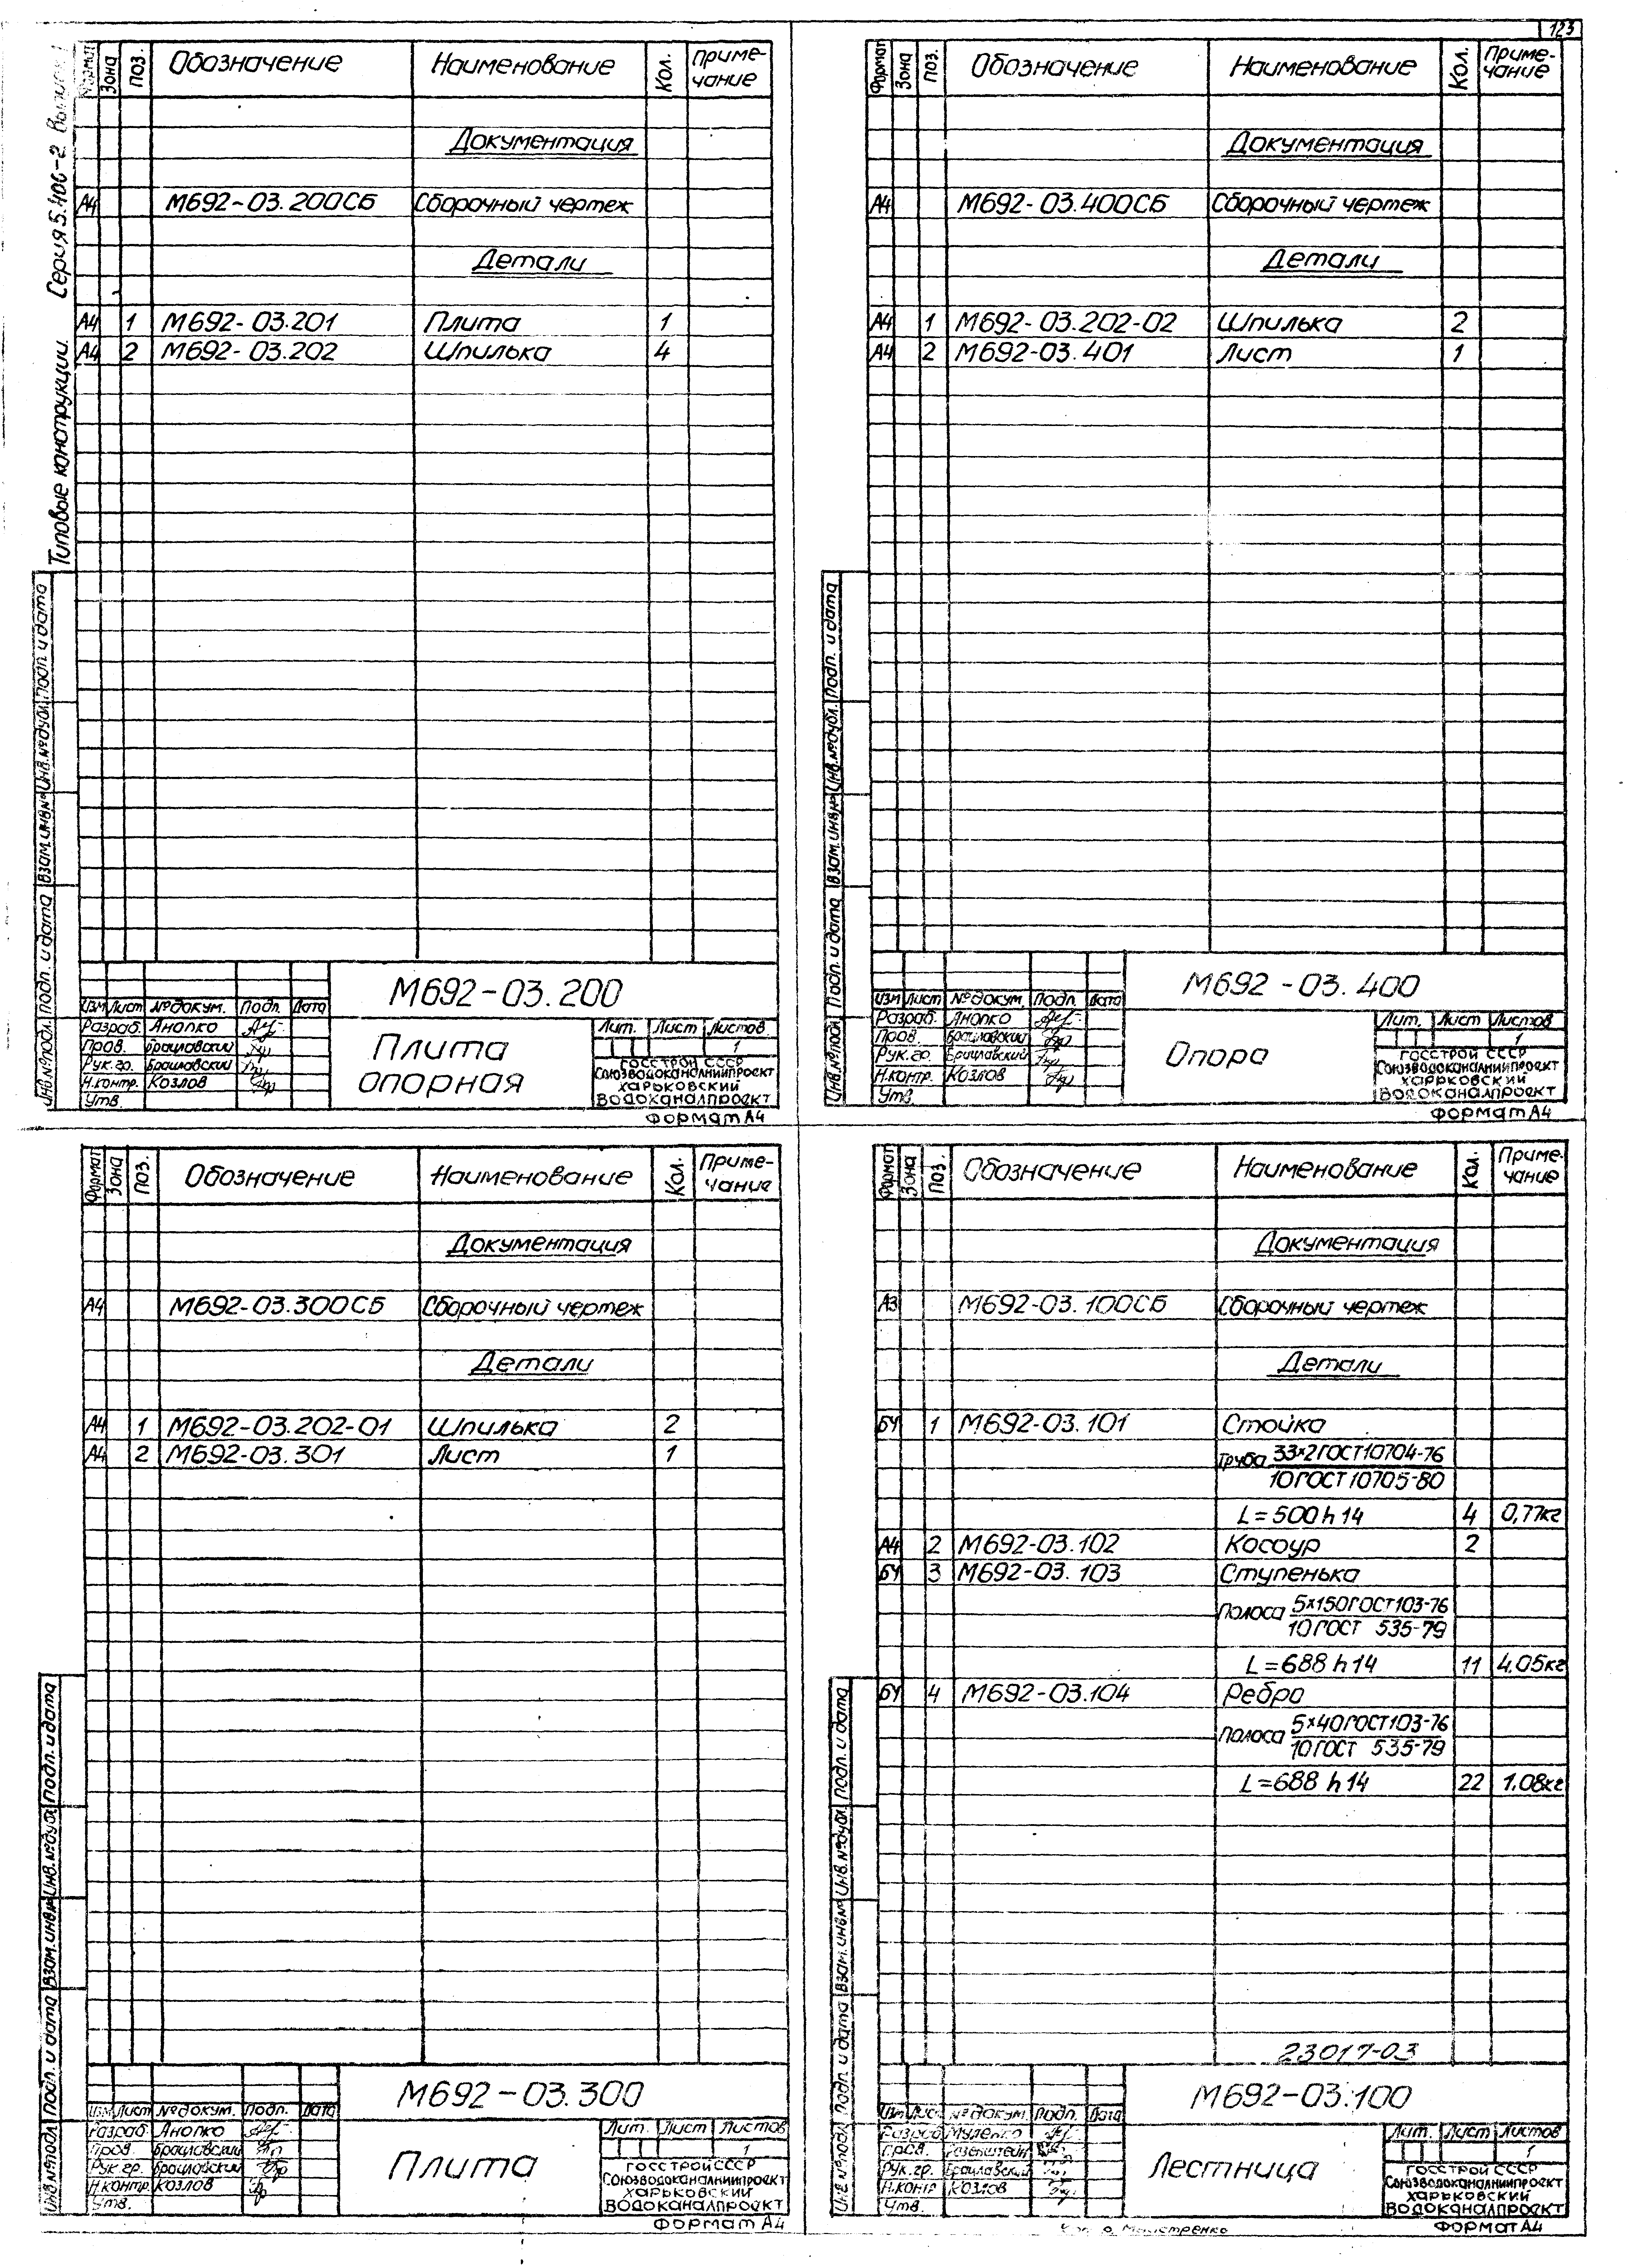 123
Типовые конструкции. Серия 5.406-2
Формат Зона Поз. Обозначение Наименование Кол. Приме-
чание
Документация
А4 М692-03.200СБ Сборочный чертеж
Детали
А4 1 М692-03.201 Плита 1
А4 2 М692-03.202 Шпилька 4
Инв.№подл. Подп. и дата Взам.инв.№ Инв.№дубл. Подп. и дата
М692-03.200
Изм Лист №докум. Подп. Дата
Разраб. Анопко
Пров. Брацловский
Рук.гр. Брацловский
Н.контр. Козлов
Утв.
Плита
опорная
Лит. Лист Листов
1
Госстрой СССР
Союзводоканалниипроект
Харьковский
Водоканалпроект
Формат А4
Формат Зона Поз. Обозначение Наименование Кол. Приме-
чание
Документация
А4 М692-03.400СБ Сборочный чертеж
Детали
А4 1 М692-03.202-02 Шпилька 2
А4 2 М692-03.401 Лист 1
Инв.№подл. Подп. и дата Взам.инв.№ Инв.№дубл. Подп. и дата
М692-03.400
Изм Лист №докум. Подп. Дата
Разраб. Анопко
Пров. Брацловский
Рук.гр. Брацловский
Н.контр. Козлов
Утв.
Опора
Лит. Лист Листов
1
Госстрой СССР
Союзводоканалниипроект
Харьковский
Водоканалпроект
Формат А4
Формат Зона Поз. Обозначение Наименование Кол. Приме-
чание
Документация
А4 М692-03.300СБ Сборочный чертеж
Детали
А4 1 М692-03.202-01 Шпилька 2
А4 2 М692-03.301 Лист 1
Инв.№подл. Подп. и дата Взам.инв.№ Инв.№дубл. Подп. и дата
М692-03.300
Изм Лист №докум. Подп. Дата
Разраб. Анопко
Пров. Брацловский
Рук.гр. Брацловский
Н.контр. Козлов
Утв.
Плита
Лит. Лист Листов
1
Госстрой СССР
Союзводоканалниипроект
Харьковский
Водоканалпроект
Формат А4
Формат Зона Поз. Обозначение Наименование Кол. Приме-
чание
Документация
А3 М692-03.100СБ Сборочный чертеж
Детали
БЧ 1 М692-03.101 Стойка
Труба 33×2ГОСТ10704-76
10ГОСТ10705-80
L=500h14 4 0,77кг
А4 2 М692-03.102 Косоур 2
БЧ 3 М692-03.103 Ступенька
Полоса 5×150ГОСТ103-76
10ГОСТ 535-79
L=688 h14 11 4.05кг
БЧ 4 М692-03.104 Ребро
Полоса 5×40ГОСТ103-76
10ГОСТ 535-79
L=688 h14 22 1.08кг
23017-03
Инв.№подл. Подп. и дата Взам.инв.№ Инв.№дубл. Подп. и дата
М692-03.100
Изм Лист №докум. Подп. Дата
Разраб. Муленко
Пров.
Рук.гр. Брацлавский
Н.контр Козлов
Утв.
Лестница
Лит. Лист Листов
1
Госстрой СССР
Союзводоканалниипроект
Харьковский
Водоканалпроект
Формат А4